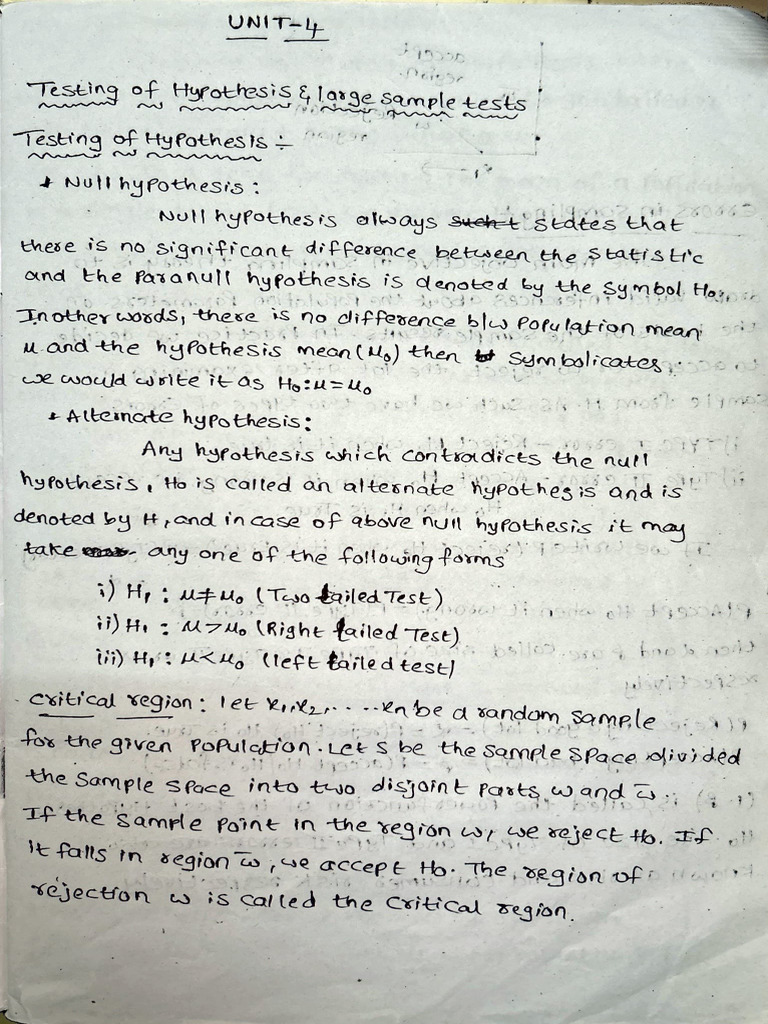 UNIT-4
Testing of Hypothesis & large sample tests
Testing of Hypothesis :-
* Null hypothesis :
Null hypothesis always states that
there is no significant difference between the statistic
and the paranull hypothesis is denoted by the symbol H₀.
In other words, there is no difference b/w population mean
μ and the hypothesis mean (μ₀) then symbolicates.
we would write it as H₀: μ = μ₀
* Alternate hypothesis:
Any hypothesis which contradicts the null
hypothesis, H₀ is called an alternate hypothesis and is
denoted by H₁ and in case of above null hypothesis it may
take any one of the following forms
i) H₁ : μ ≠ μ₀ (Two tailed Test)
ii) H₁ : μ > μ₀ (Right tailed Test)
iii) H₁ : μ < μ₀ (left tailed test)
Critical region : let x₁, x₂, ..... xn be a random sample
for the given population. Let S be the sample space divided
the sample space into two disjoint parts, ω and ω̅.
If the sample point in the region ω, we reject H₀. If
it falls in region ω̅, we accept H₀. The region of
rejection ω is called the critical region.